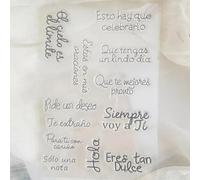 El cielo es
el límite
Estás en mis
oraciones
Esto hay que
celebrarlo
Que tengas
un lindo día
Que te mejores
pronto
Pide un deseo
Te extraño
Para ti con
cariño
Sólo una
nota
Hola
Siempre
voy a Ti
Eres tan
Dulce